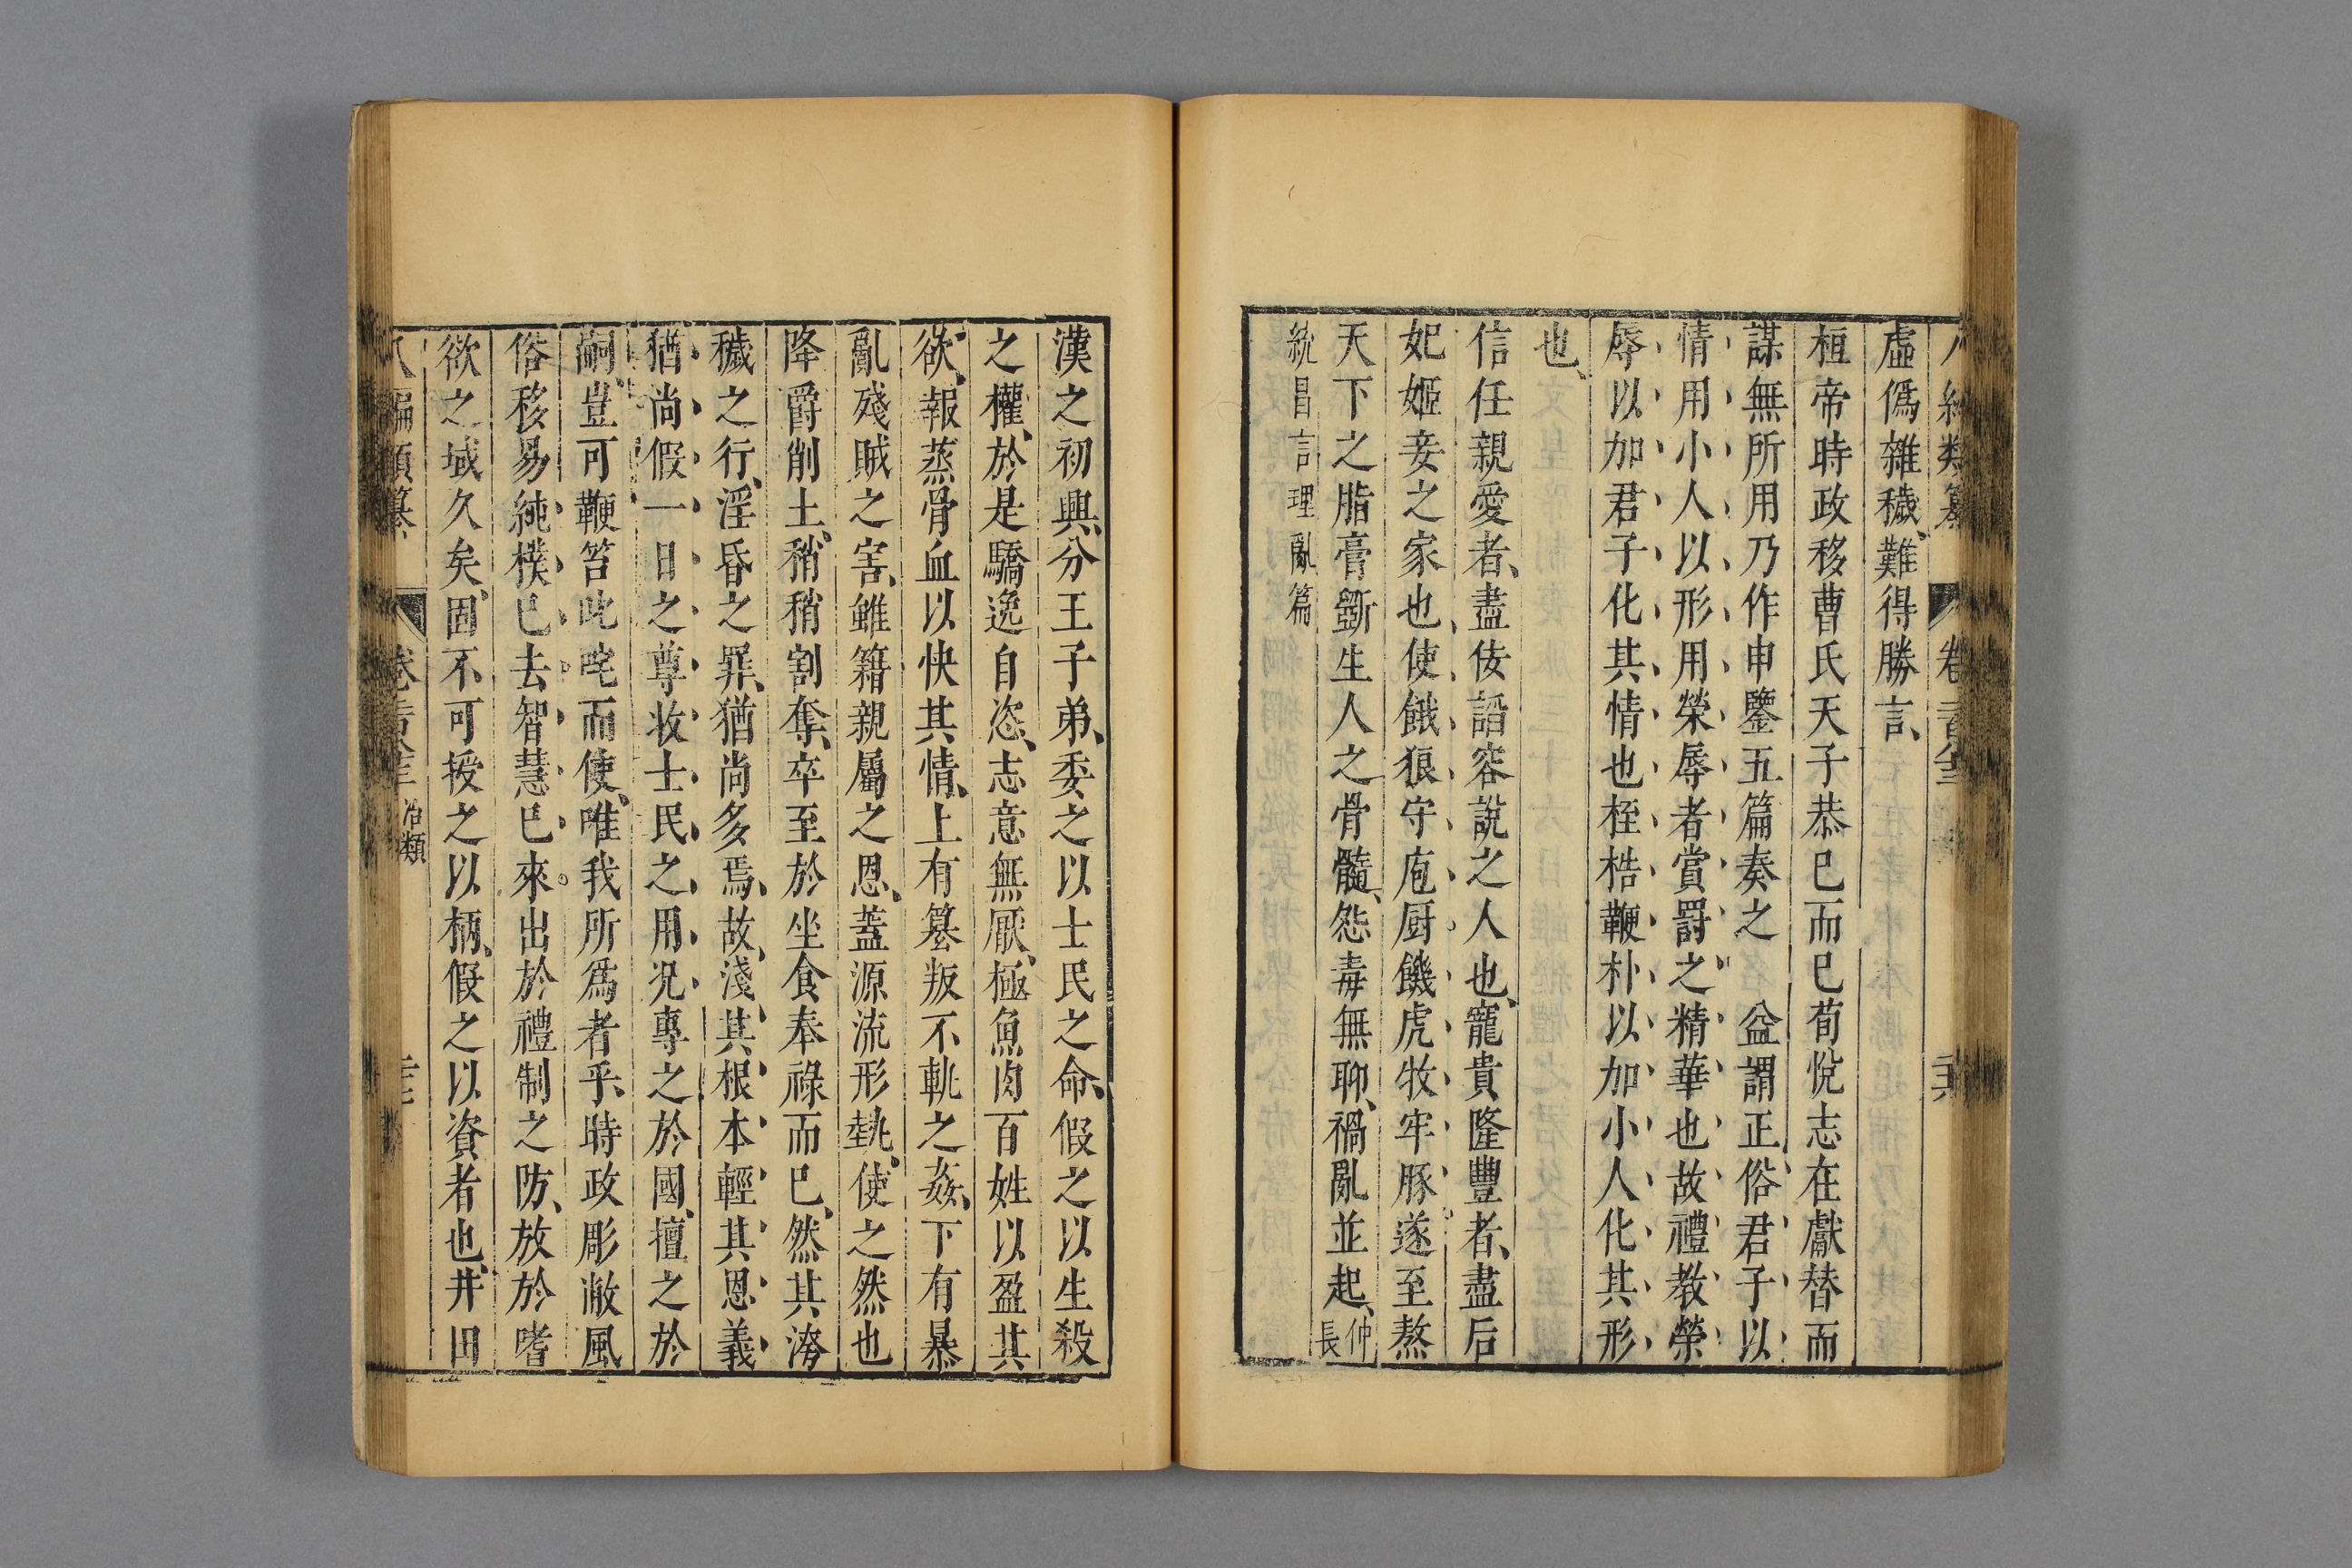 類纂 卷
虛僞雜穢難得勝言
桓帝時政移曹氏天子恭已而已荀悅志在獻替而
謀無所用乃作申鑒五篇奏之 益謂正俗君子以
情用小人以形用榮辱者賞罰之精華也故禮教榮
辱以加君子化其情也桎梏鞭朴以加小人化其形
也
信任親愛者盡佞諂容說之人也寵貴隆豐者盡后
妃姬妾之家也使餓狼守庖厨饑虎牧牢豚遂至熬
天下之脂膏斵生人之骨髓怨毒無聊禍亂並起仲長
統昌言理亂篇
漢之初興分王子弟委之以士民之命假之以生殺
之權於是驕逸自恣志意無厭極魚肉百姓以盈其
欲報蒸骨血以快其情上有篡叛不軌之姦下有暴
亂殘賊之害雖籍親屬之恩蓋源流形埶使之然也
降爵削土稍稍割奪卒至於坐食奉祿而已然其洿
穢之行淫昏之罪猶尚多焉故淺其根本輕其恩義
猶尚假一日之尊收士民之用况專之於國擅之於
嗣豈可鞭笞叱咤而使唯我所爲者乎時政彫敝風
俗移易純樸已去智慧已來出於禮制之防放於嗜
欲之域久矣固不可授之以柄假之以資者也井田
八編類纂 卷 治類